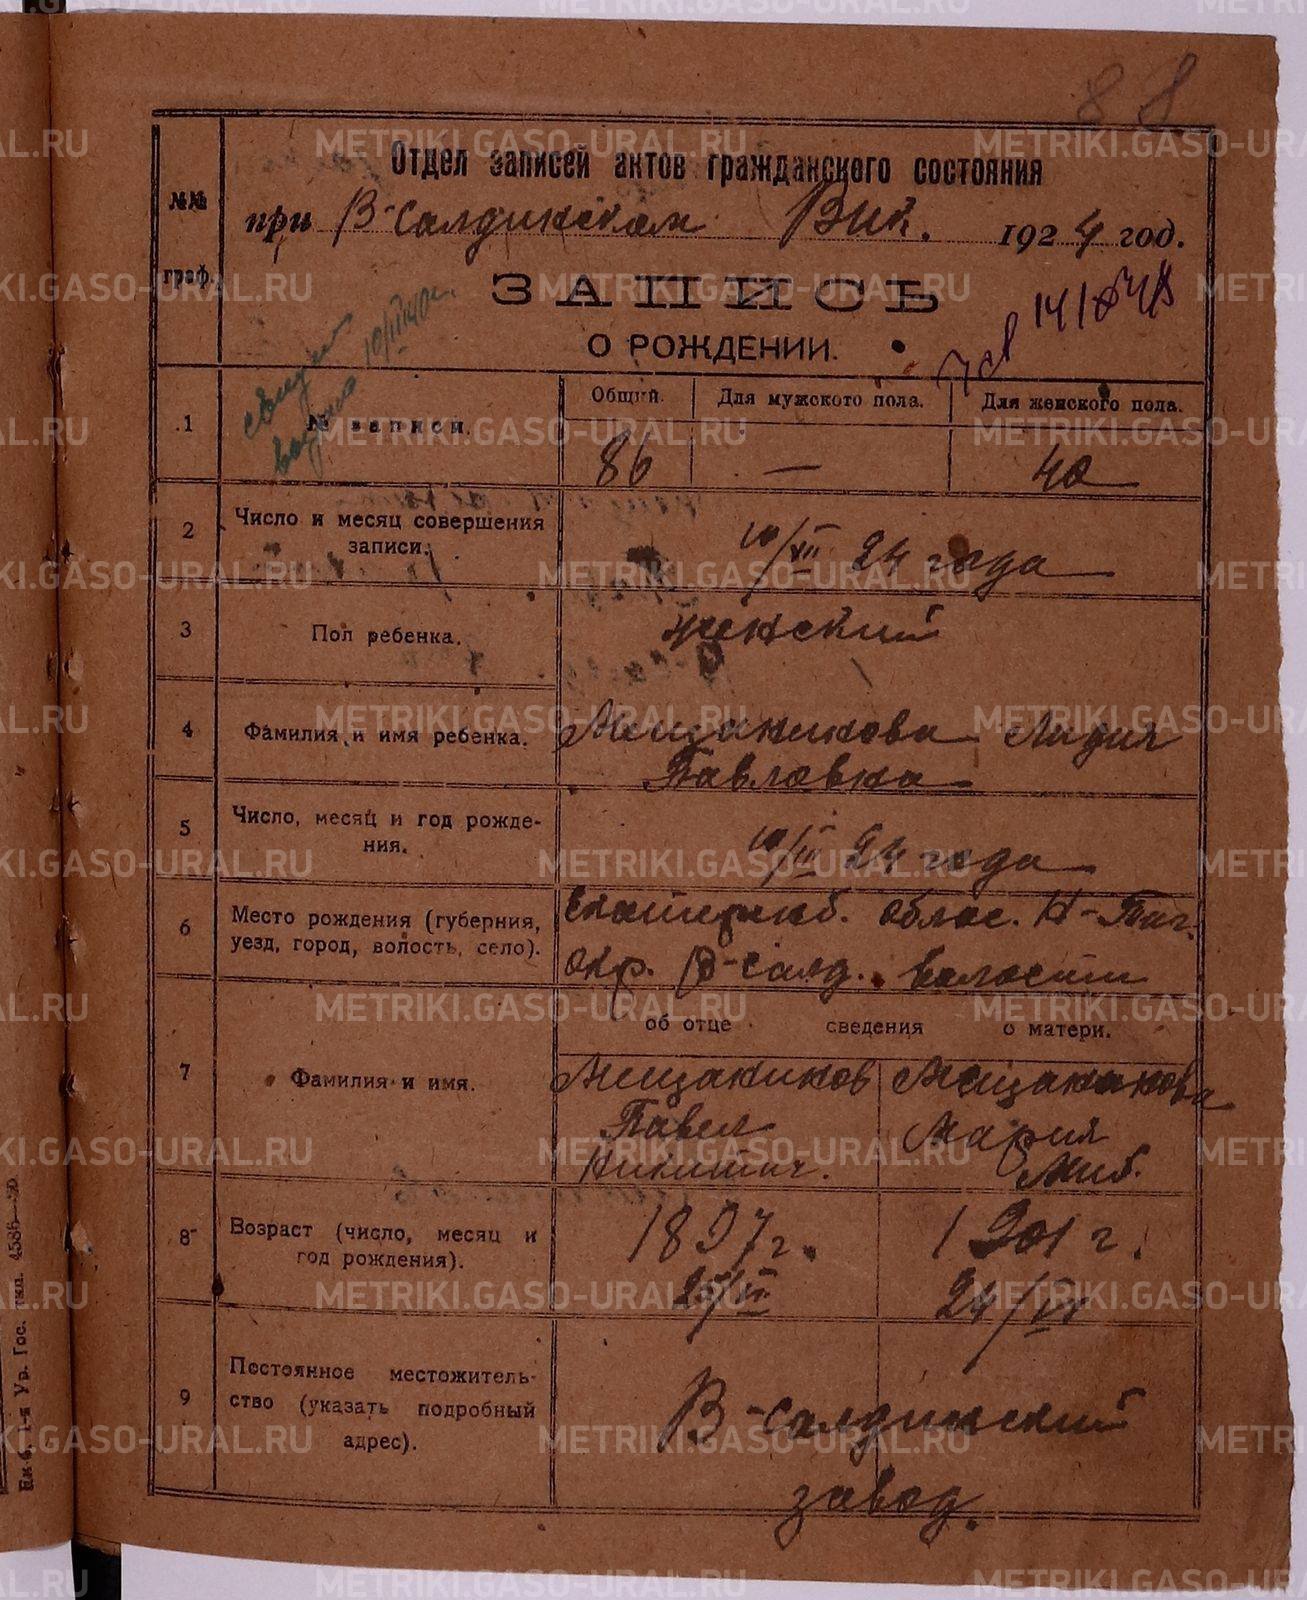 88
Отдел записей актов гражданского состояния
№№ граф.
при В-Салдинском Вик. 1924 год.
ЗАПИСЬ
О РОЖДЕНИИ.
10/II 40г.
1
№ записи.
Общий.
Для мужского пола.
Для женского пола.
86
—
40
2
Число и месяц совершения
записи.
10/VII 24 года
3
Пол ребенка.
женский
4
Фамилия и имя ребенка.
Мещанинова Лидия
Павловна
5
Число, месяц и год рожде-
ния.
24 года
6
Место рождения (губерния,
уезд, город, волость, село).
Екатеринб. облас. Н-Таг.
окр. В-Салд. волости
об отце сведения о матери.
7
Фамилия и имя.
Мещанинов
Павел
Никитич.
Мещанинова
Мария
8
Возраст (число, месяц и
год рождения).
1897 г.
1901 г.
24/VI
9
Постоянное местожитель-
ство (указать подробный
адрес).
В-Салдинский
завод.
1-я Ур. Гос. тип. 4586—30
METRIKI.GASO-URAL.RU